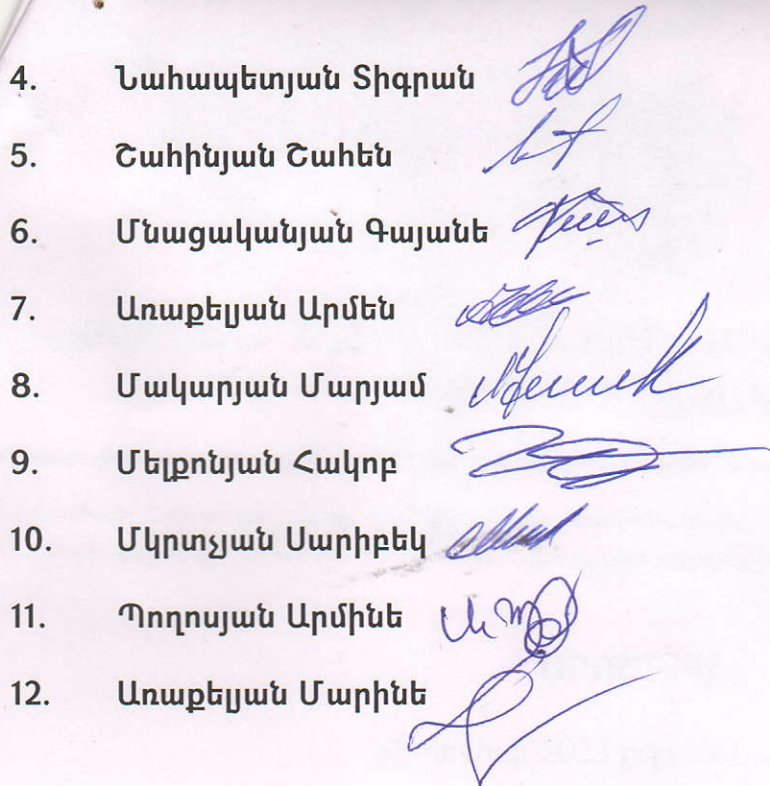 4. Նահապետյան Տիգրան
5. Շահինյան Շահեն
6. Մնացականյան Գայանե
7. Առաքելյան Արմեն
8. Մակարյան Մարյամ
9. Մելքոնյան Հակոբ
10. Մկրտչյան Սարիբեկ
11. Պողոսյան Արմինե
12. Առաքելյան Մարինե